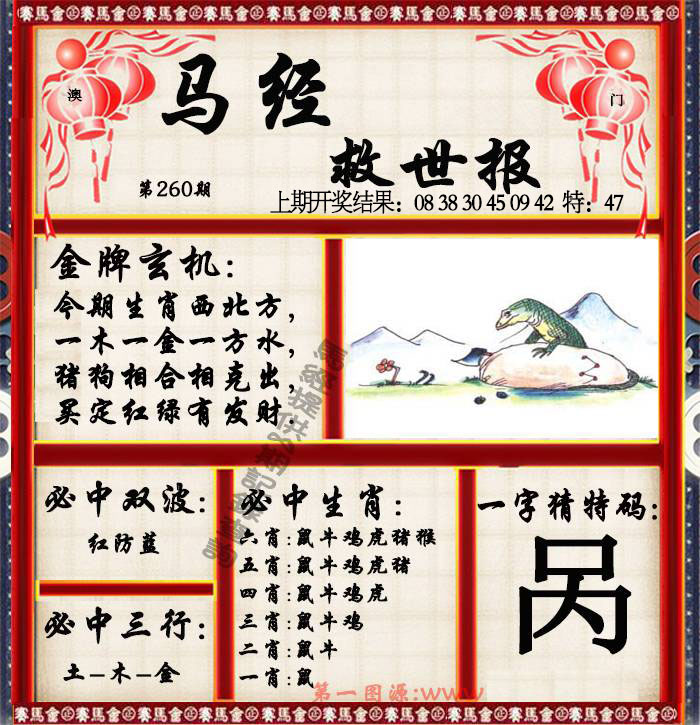 賽馬會正賽馬會正賽馬會正賽馬會正賽馬會正賽馬會正賽馬會
澳
门
马经
救世报
第260期
上期开奖结果：08 38 30 45 09 42 特：47
金牌玄机：
今期生肖西北方，
一木一金一方水，
猪狗相合相克出，
买定红绿有发财.
必中双波：
红防蓝
必中三行：
土–木–金
必中生肖：
六肖:鼠牛鸡虎猪猴
五肖:鼠牛鸡虎猪
四肖:鼠牛鸡虎
三肖:鼠牛鸡
二肖:鼠牛
一肖:鼠
一字猜特码：
呙
第一图源:www